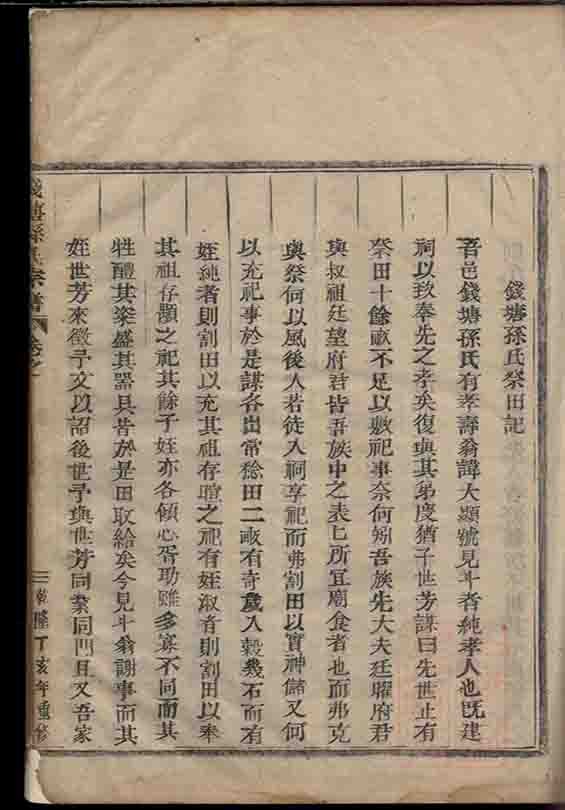 錢塘孫氏祭田記
吾邑錢塘孫氏有孝壽翁諱大顯號見斗者純孝人也旣建
祠以致奉先之孝矣復與其弟度猶子世芳謀曰先世止有
祭田十餘畝不足以敷祀事奈何矧吾族先大夫廷曜府君
與叔祖廷望府君皆吾族中之表上所宜廟食者也而弗克
與祭何以風後人若徒入祠享祀而弗割田以實神儲又何
以充祀事於是謀各出常稔田二畝有奇歲入穀幾石而有
姪純者則割田以充其祖存瞳之祀有姪淑者則割田以奉
其祖存顯之祀其餘子姪亦各傾心胥助雖多寡不同而其
牲醴其粢盛其器具皆於是田取給矣今見斗翁謝事而其
姪世芳來徵予文以詔後世予與世芳同業同門且又吾家
錢塘孫氏宗譜
卷之
乾隆丁亥年重修